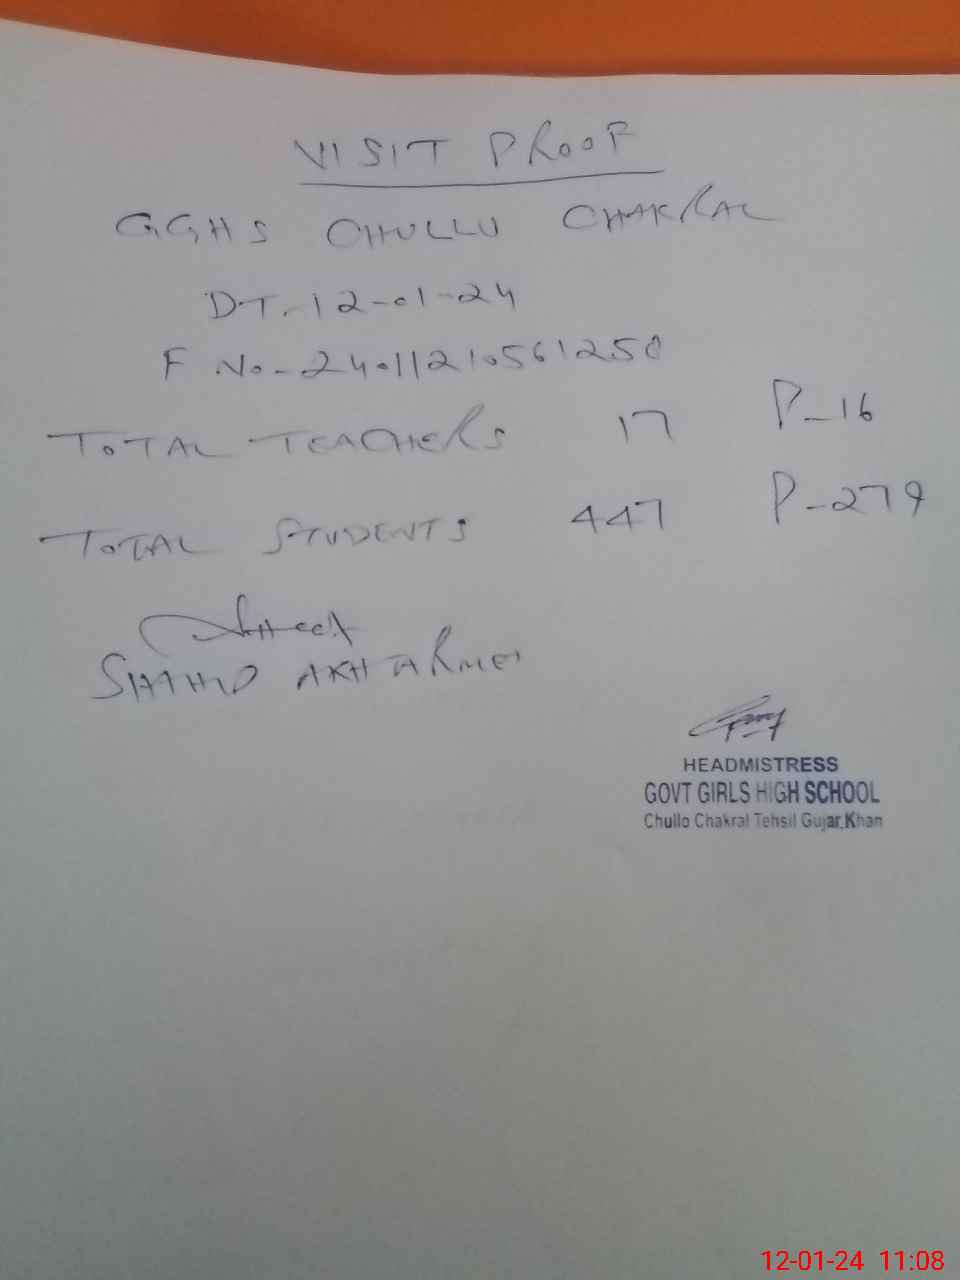 VISIT PROOF
GGHS CHULLU CHAKRAL
DT. 12-01-24
F No- 24011210561250
TOTAL TEACHERS 17 P-16
TOTAL STUDENTS 447 P-279
SHAHID AKHTAR
HEADMISTRESS
GOVT GIRLS HIGH SCHOOL
Chullo Chakral Tehsil Gujar Khan
12-01-24 11:08